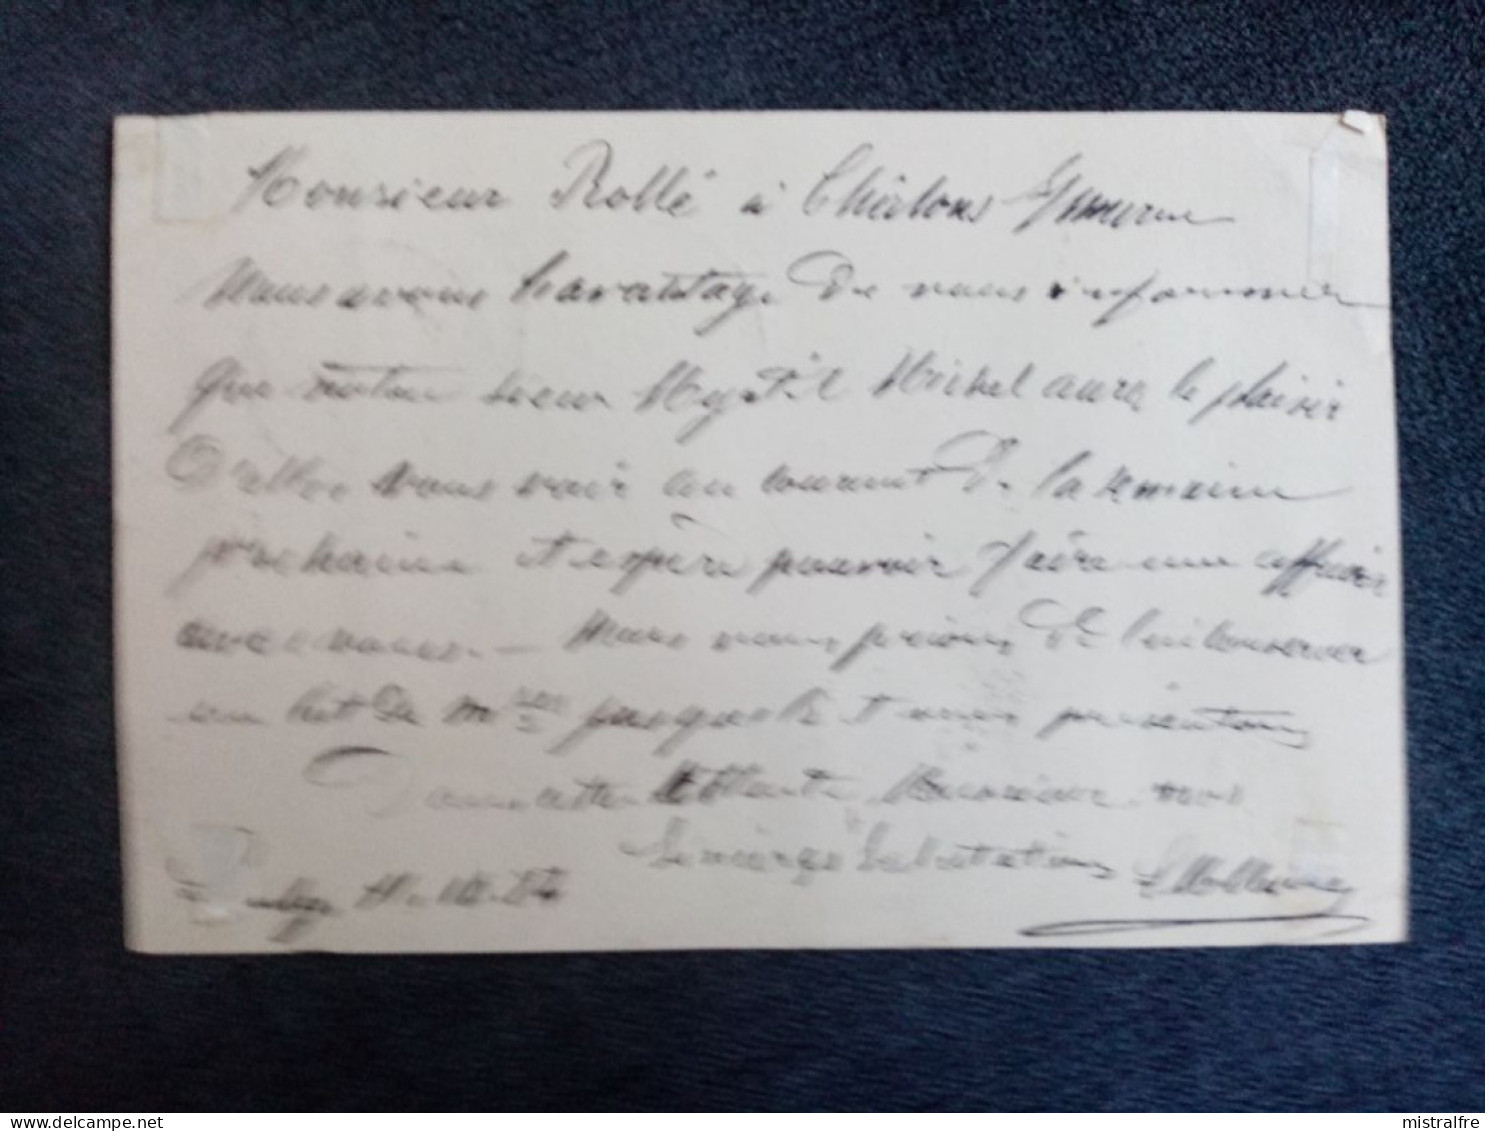 Monsieur Rollé à Châlons s/marne
Nous avons l'avantage de vous informer
que notre sieur Myrtil Michel aura le plaisir
d'aller vous voir au courant de la semaine
prochaine et espère pouvoir faire une affaire
avec vous. — Nous vous prions de lui conserver
un lot de
Dans cette attente Monsieur nos
sincères salutations
mistralfre